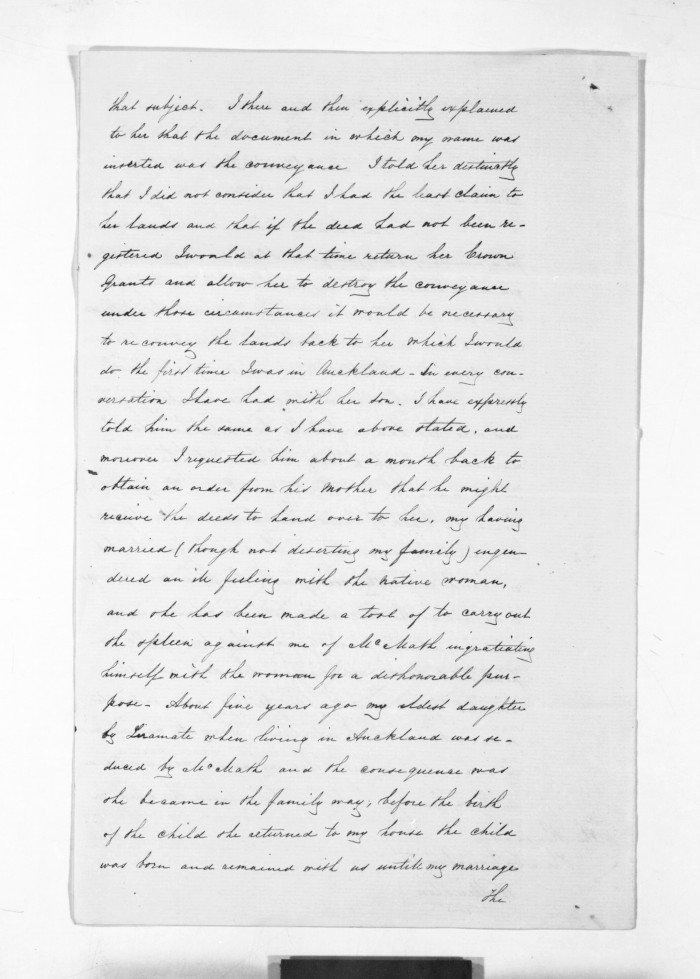 that subject. I there and then explicitly explained
to her that the document in which my name was
inserted was the conveyance I told her distinctly
that I did not consider that I had the least claim to
her lands and that if the deed had not been re-
gistered I would at that time return her Crown
Grants and allow her to destroy the conveyance
under those circumstances it would be necessary
to reconvey the lands back to her which I would
do the first time I was in Auckland - In every con-
versation I have had with her son. I have expressly
told him the same as I have above stated, and
moreover I requested him about a month back to
obtain an order from his mother that he might
receive the deeds to hand over to her, my having
married (though not deserting my family) engen-
dered an ill feeling with the native woman,
and she has been made a tool of to carry out
the spleen against me of McMath ingratiating
himself with the woman for a dishonorable pur-
pose - About five years ago my eldest daughter
by when living in Auckland was se-
duced by McMath and the consequence was
she became in the family way, before the birth
of the child she returned to my house the child
was born and remained with us until my marriage
The